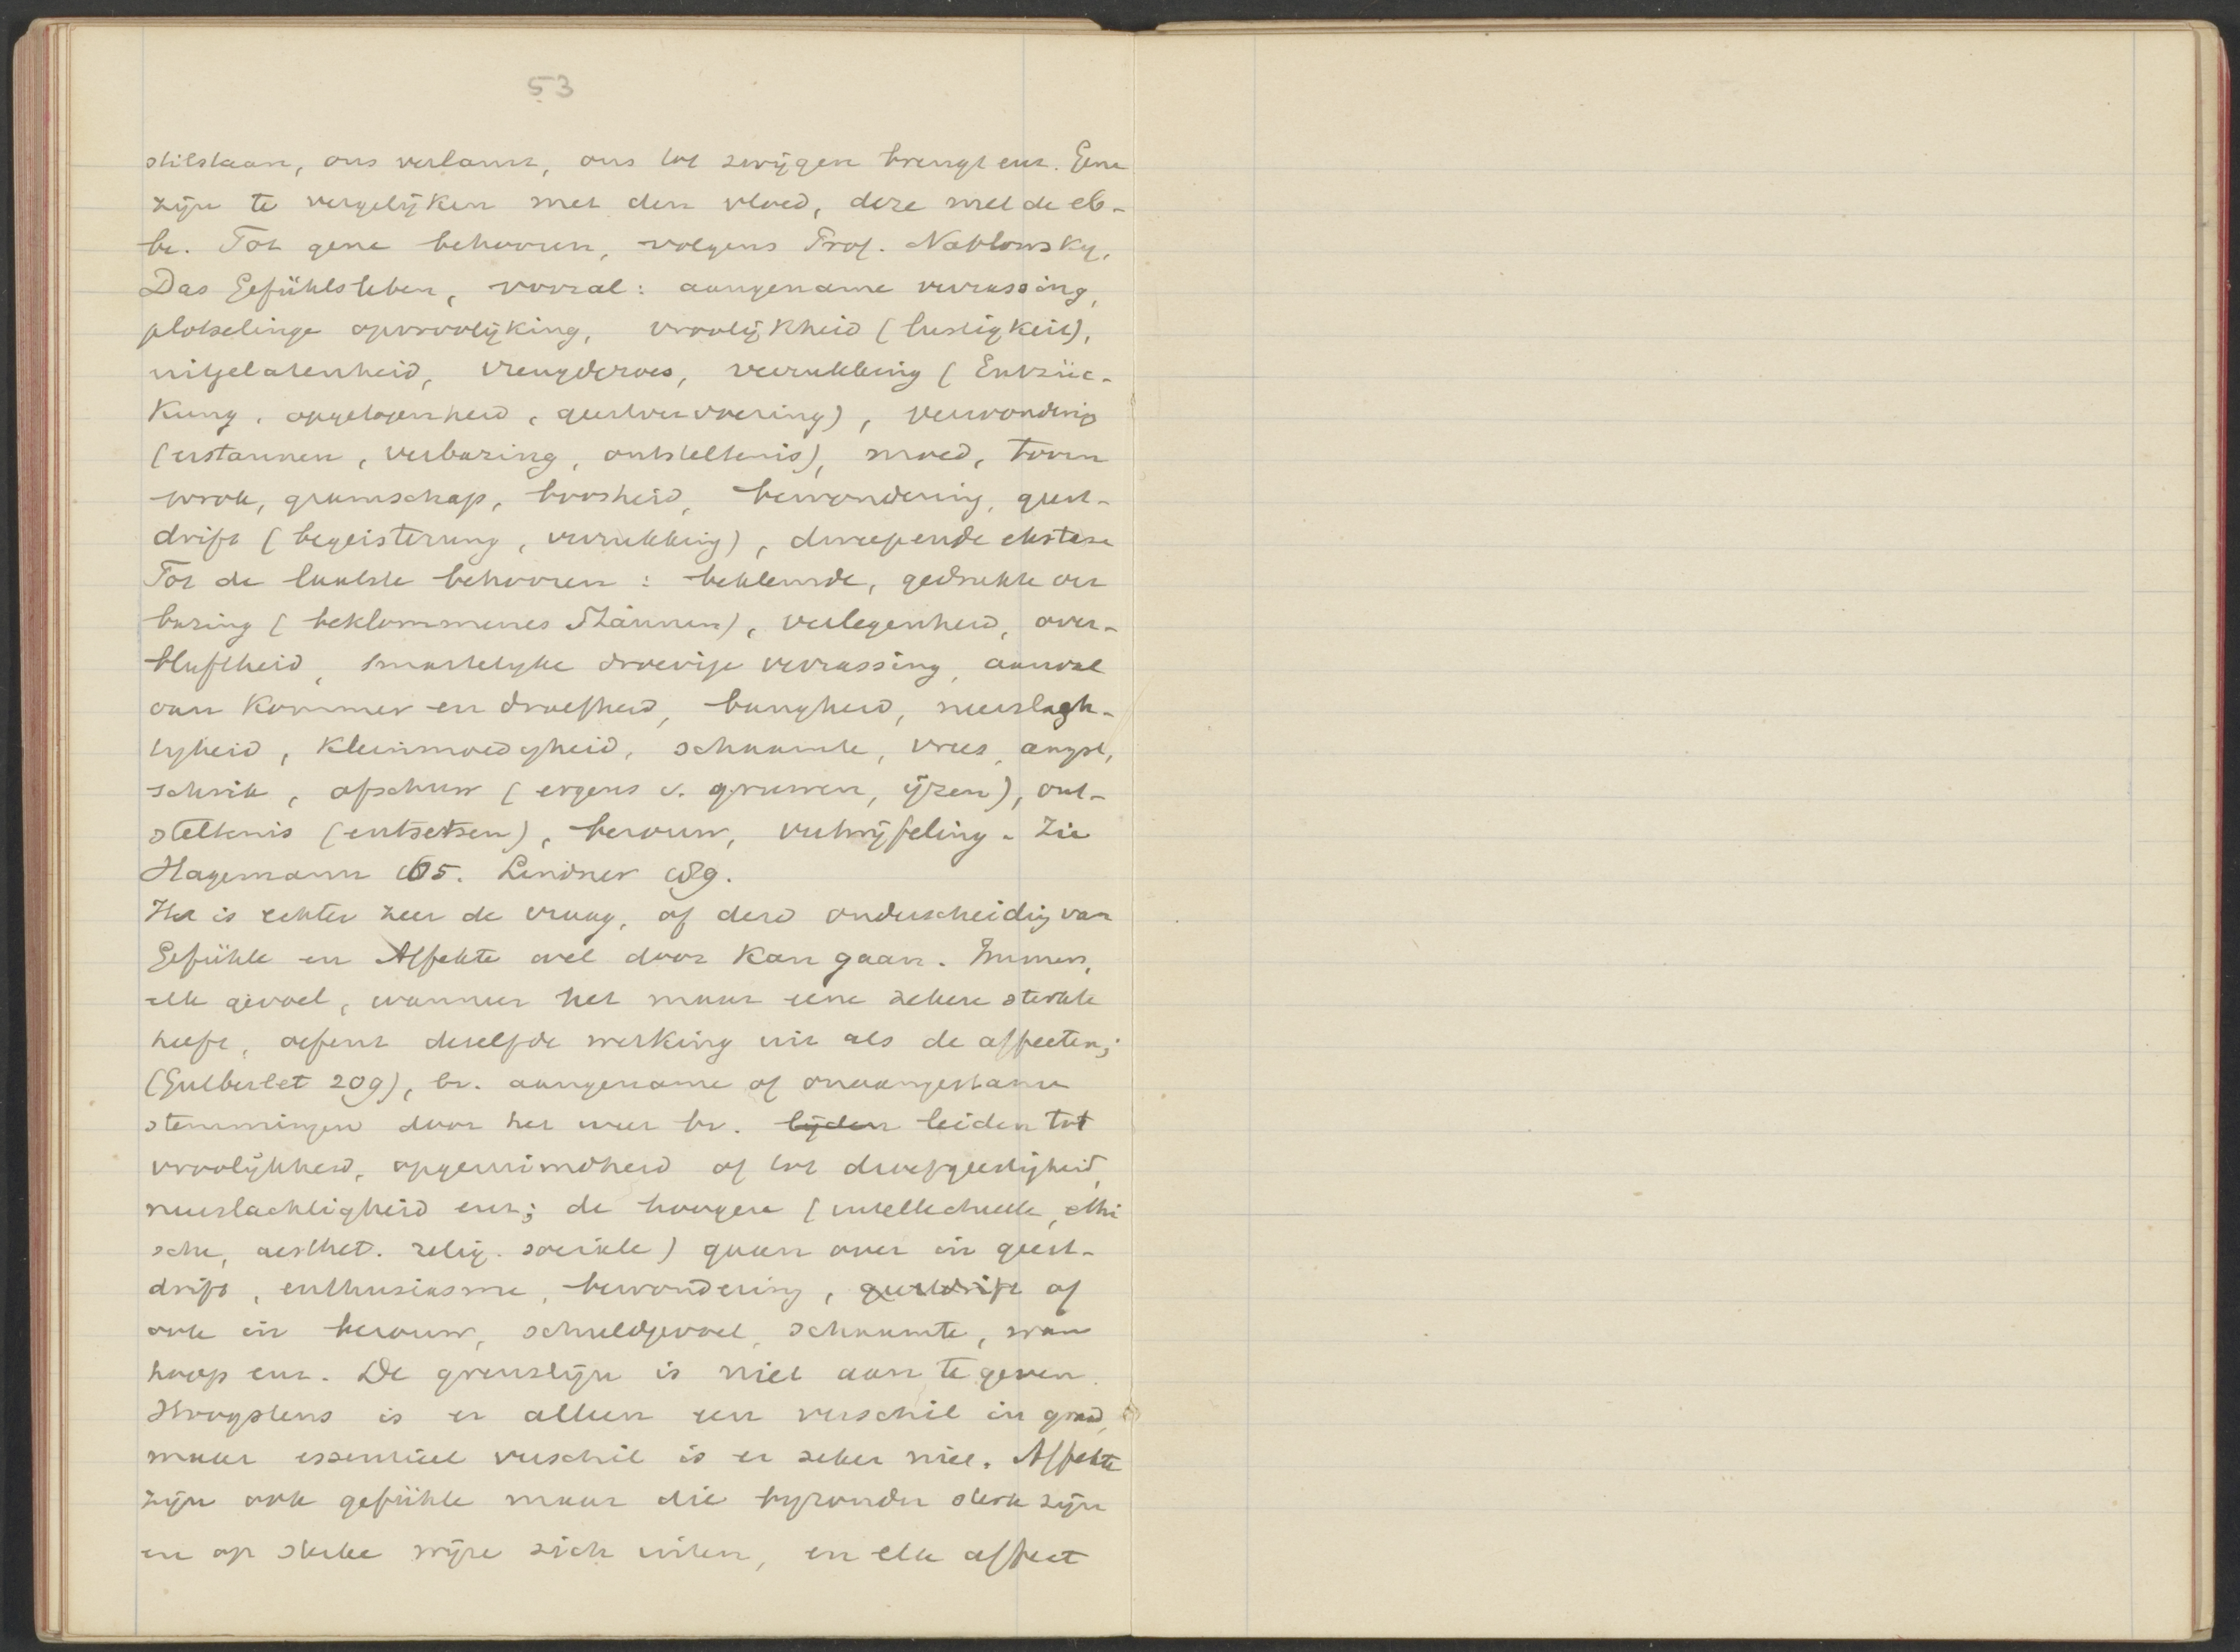 53
stilstaan, ons verlamt, ons tot zwijgen brengt enz. Gene
zijn te vergelijken met den vloed, deze met de eb-
be. Tot gene behooren, volgens Prof. Nahlowsky,
Das Gefühlsleben, vooral: aangename verrassing,
plotselinge opvroolijking, vroolijkheid (lustigkeit),
uitgelatenheid, vreugderoes, verrukking (Entzüc-
kung, opgetogenheid, geestvervoering), verwondering
(erstaunen, verbazing, ontsteltenis), moed, toorn
wrok, gramschap, boosheid, bewondering, geest-
drift (begeisterung, verrukking), dweepende ekstase
Tot de laatste behooren: beklemde, gedrukte ver
bazing (beklommenes Stäunen), verlegenheid, over-
bluftheid, smartelyke droevige verrassing, aanval
van kommer en droefheid, bangheid, neerslagh-
tigheid, kleinmoedigheid, schaamte, vrees, angst,
schrik, afschuw (ergens v. gruwen, ijzen), ont-
steltenis (entsetsen), berouw, vertwijfeling. Zie
Hagemann 65. Lindner 89.
Het is echter zeer de vraag, of deze onderscheidig van
Gefühle en Affekte wel door kan gaan. Immers,
elk gevoel, wanneer het maar eene zekere sterkte
heeft, oefent dezelfde werking uit als de affecten;
(Gutberlet 209), bv. aangename of onaangename
stemmingen door het weer bv. lijden leiden tot
vroolijkheid, opgeruimdheid of tot droefgeestigheid,
neerslachtigheid enz; de hoogere (intellectueele, ethi
sche, aesthet. relig. sociale) gaan over in geest-
drift, enthusiasme, bewondering, geestdrift of
ook in berouw, schuldgevoel, schaamte, wan
hoop enz. De grenslijn is niet aan te geven.
Hoogstens is er alleen een verschil in graad,
maar essentieel verschil is er zeker niet. Affekte
zijn ook gefühle maar die byzonder sterk zijn
en op sterke wijze zich uiten, en elk affect